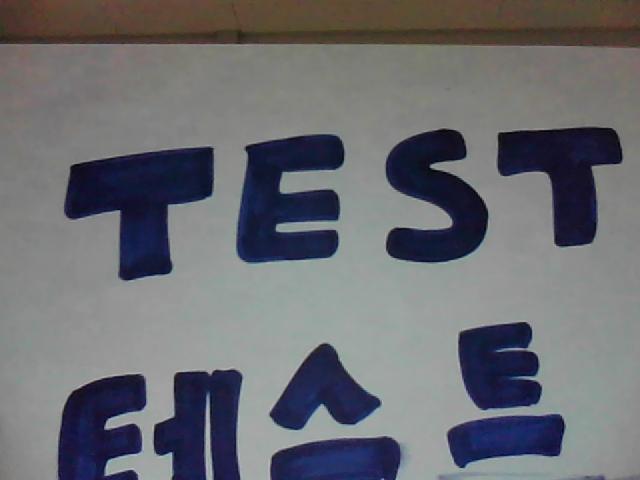 TEST
테스트